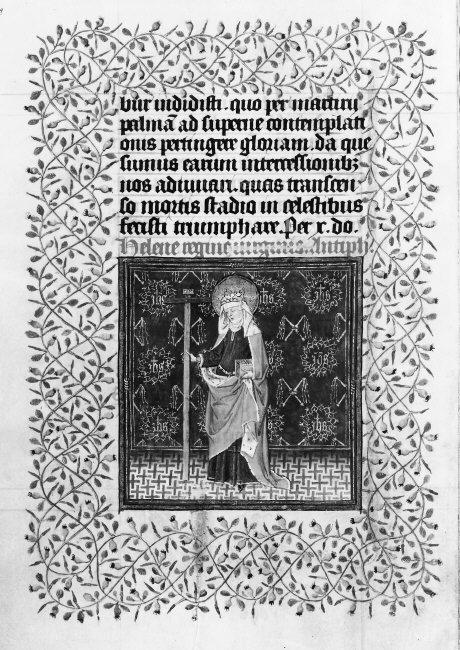 bur indidisti. quo per martirii
palmā ad superne contemplati
onis pertingere gloriam. da que
sumus earum intercessionibz
nos adiuuari. quas transcen
so mortis stadio in celestibus
fecisti triumphare. Per x. do.
Helene regine uirginis. Antiph
ihs
ihs
ihs
ihs
ihs
ihs
ihs